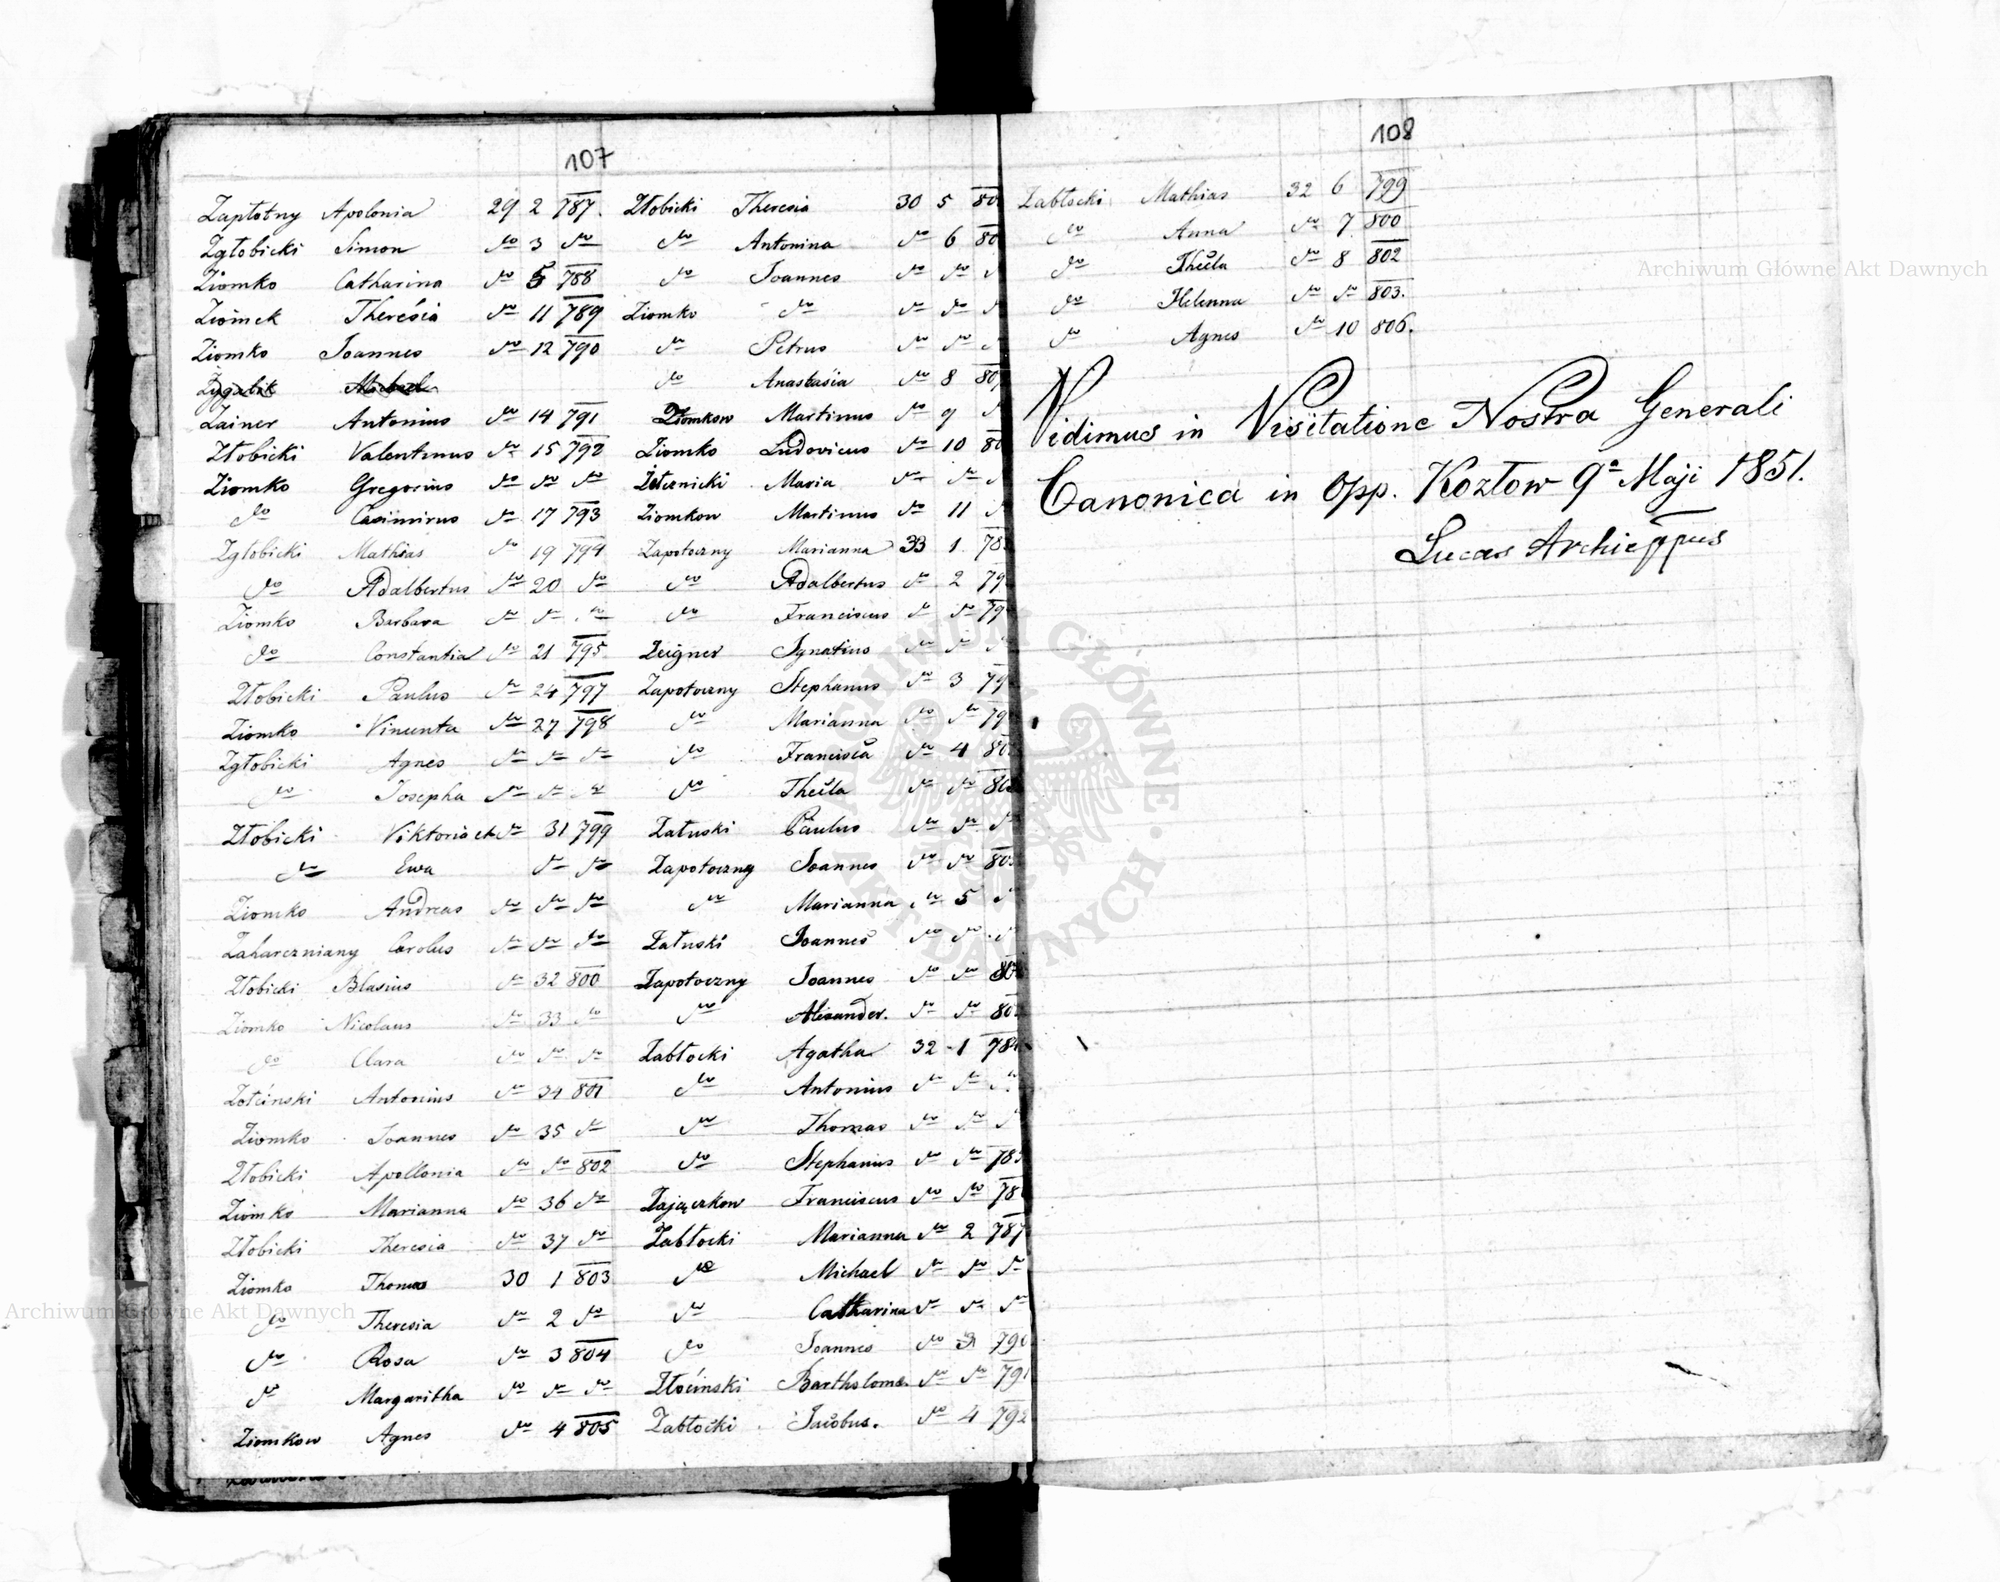 107
Zapłotny Apolonia 29 2 787.
Zgłobicki Simon do 3 do
Ziomko Catharina do 5 788
Ziomek Theresia do 11 789
Ziomko Joannes do 12 790
Zainer Antonius do 14 791
Złobicki Valentinus do 15 792
Ziomko Gregorius do do do
do Casimirus do 17 793
Zgłobicki Mathias do 19 794
do Adalbertus do 20 do
Ziomko Barbara do do do
do Constantia do 21 795
Złobicki Paulus do 24 797
Ziomko Vincenta do 27 798
Zgłobicki Agnes do do do
do Josepha do do do
Złobicki Viktoria et do 31 799
do Ewa do do
Ziomko Andreas do do do
Zaharczniany Carolus do do do
Złobicki Blasius do 32 800
Ziomko Nicolaus do 33 do
do Clara do do do
Antonius do 34 801
Ziomko Joannes do 35 do
Złobicki Apollonia do do 802
Ziomko Marianna do 36 do
Złobicki Theresia do 37 do
Ziomko Thomas 30 1 803
do Theresia do 2 do
do Rosa do 3 804
do Margaritha do do do
Ziomkow Agnes do 4 805
Złobicki Theresia 30 5 80
do Antonina do 6 80
do Joannes do do
Ziomko do do do
do Petrus do do
do Anastasia do 8 80
Ziomkow Martinus do 9
Ziomko Ludovicus do 10 80
Maria do do
Ziomkow Martinus do 11
Zapotoczny Marianna 33 1 78
do Adalbertus do 2 79
do Franciscus do do 79
Zeigner Ignatius do do
Zapotoczny Stephanus do 3 79
do Marianna do do 79
do Francisca do 4 80
do Thecla do do 80
Załuski Paulus do do
Zapotoczny Joannes do do 80
do Marianna do 5
Załuski Joannes do do
Zapotoczny Joannes do do 80
do Alexander. do do 80
Zabłocki Agatha 32 1 784
do Antonius do do
do Thomas do do
do Stephanus do do 785
Zajączkow Franciscus do do 78
Zabłocki Marianna do 2 787
do Michael do do do
do Catharina do do do
do Joannes do 3 790
Złociński Bartholome. do do 791
Zabłocki Jacobus. do 4 792
108
Zabłocki Mathias 32 6 799
do Anna do 7 800
do Thecla do 8 802
do Helenna do do 803.
do Agnes do 10 806.
Vidimus in Visitatione Nostra Generali
Canonica in Opp. Kozłow 9a Maji 1851.
Lucas Archieppus
Archiwum Główne Akt Dawnych
Archiwum Główne Akt Dawnych
ARCHIWUM GŁÓWNE AKT DAWNYCH